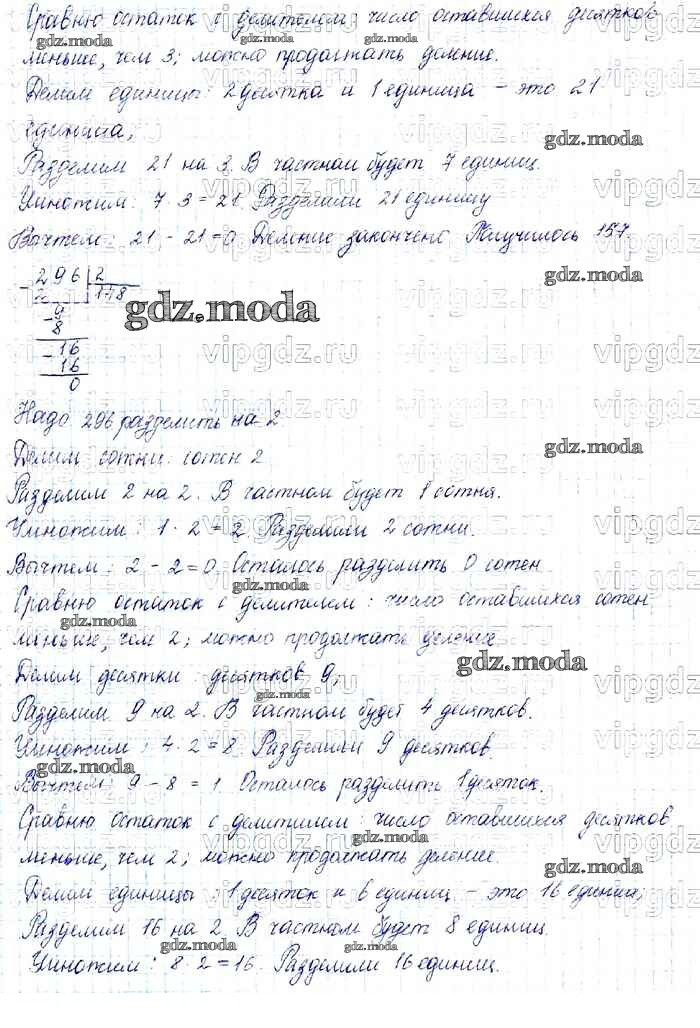 Сравню остаток с делителем: число оставшихся десятков
меньше, чем 3; можно продолжать деление.
Делим единицы: 2 десятка и 1 единица – это 21
единица;
Разделим 21 на 3. В частном будет 7 единиц.
Умножим: 7 · 3 = 21. Разделили 21 единицу
Вычтем: 21 - 21 = 0 Деление закончено. Получилось 157.
- 296 2
2 148
- 9
8
- 16
16
0
Надо 296 разделить на 2
Делим сотни: сотен 2
Разделим 2 на 2. В частном будет 1 сотня.
Умножим: 1 · 2 = 2. Разделили 2 сотни.
Вычтем: 2 - 2 = 0. Осталось разделить 0 сотен
Сравню остаток с делителем: число оставшихся сотен
меньше, чем 2; можно продолжать деление
Делим десятки: десятков 9;
Разделим 9 на 2. В частном будет 4 десятков.
Умножим: 4 · 2 = 8. Разделили 9 десятков.
Вычтем: 9 - 8 = 1. Осталось разделить 1 десяток.
Сравню остаток с делителем: число оставшихся десятков
меньше, чем 2; можно продолжать деление.
Делим единицы: 1 десяток и 6 единиц – это 16 единиц;
Разделим 16 на 2. В частном будет 8 единиц.
Умножим: 8 · 2 = 16. Разделили 16 единиц.
gdz.moda
vipgdz.ru